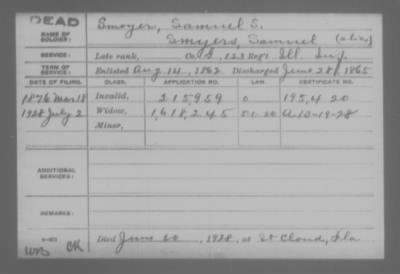 DEAD
NAME OF SOLDIER: Smoyer, Samuel S.
Smyers, Samuel (alias)
SERVICE: Late rank, Co. , 123 Reg't Ill. Inf.
TERM OF SERVICE: Enlisted Aug 14, 1862 Discharged June 28, 1865
DATE OF FILING. CLASS. APPLICATION NO. LAW. CERTIFICATE NO.
1876 Mar 18 Invalid, 215,959 0 195,420
1928 July 2 Widow, 1,618,245 5-1-20 A 10-19-28
Minor,
ADDITIONAL SERVICES:
REMARKS:
Died June 20, 1928, at St Cloud, Fla
CK